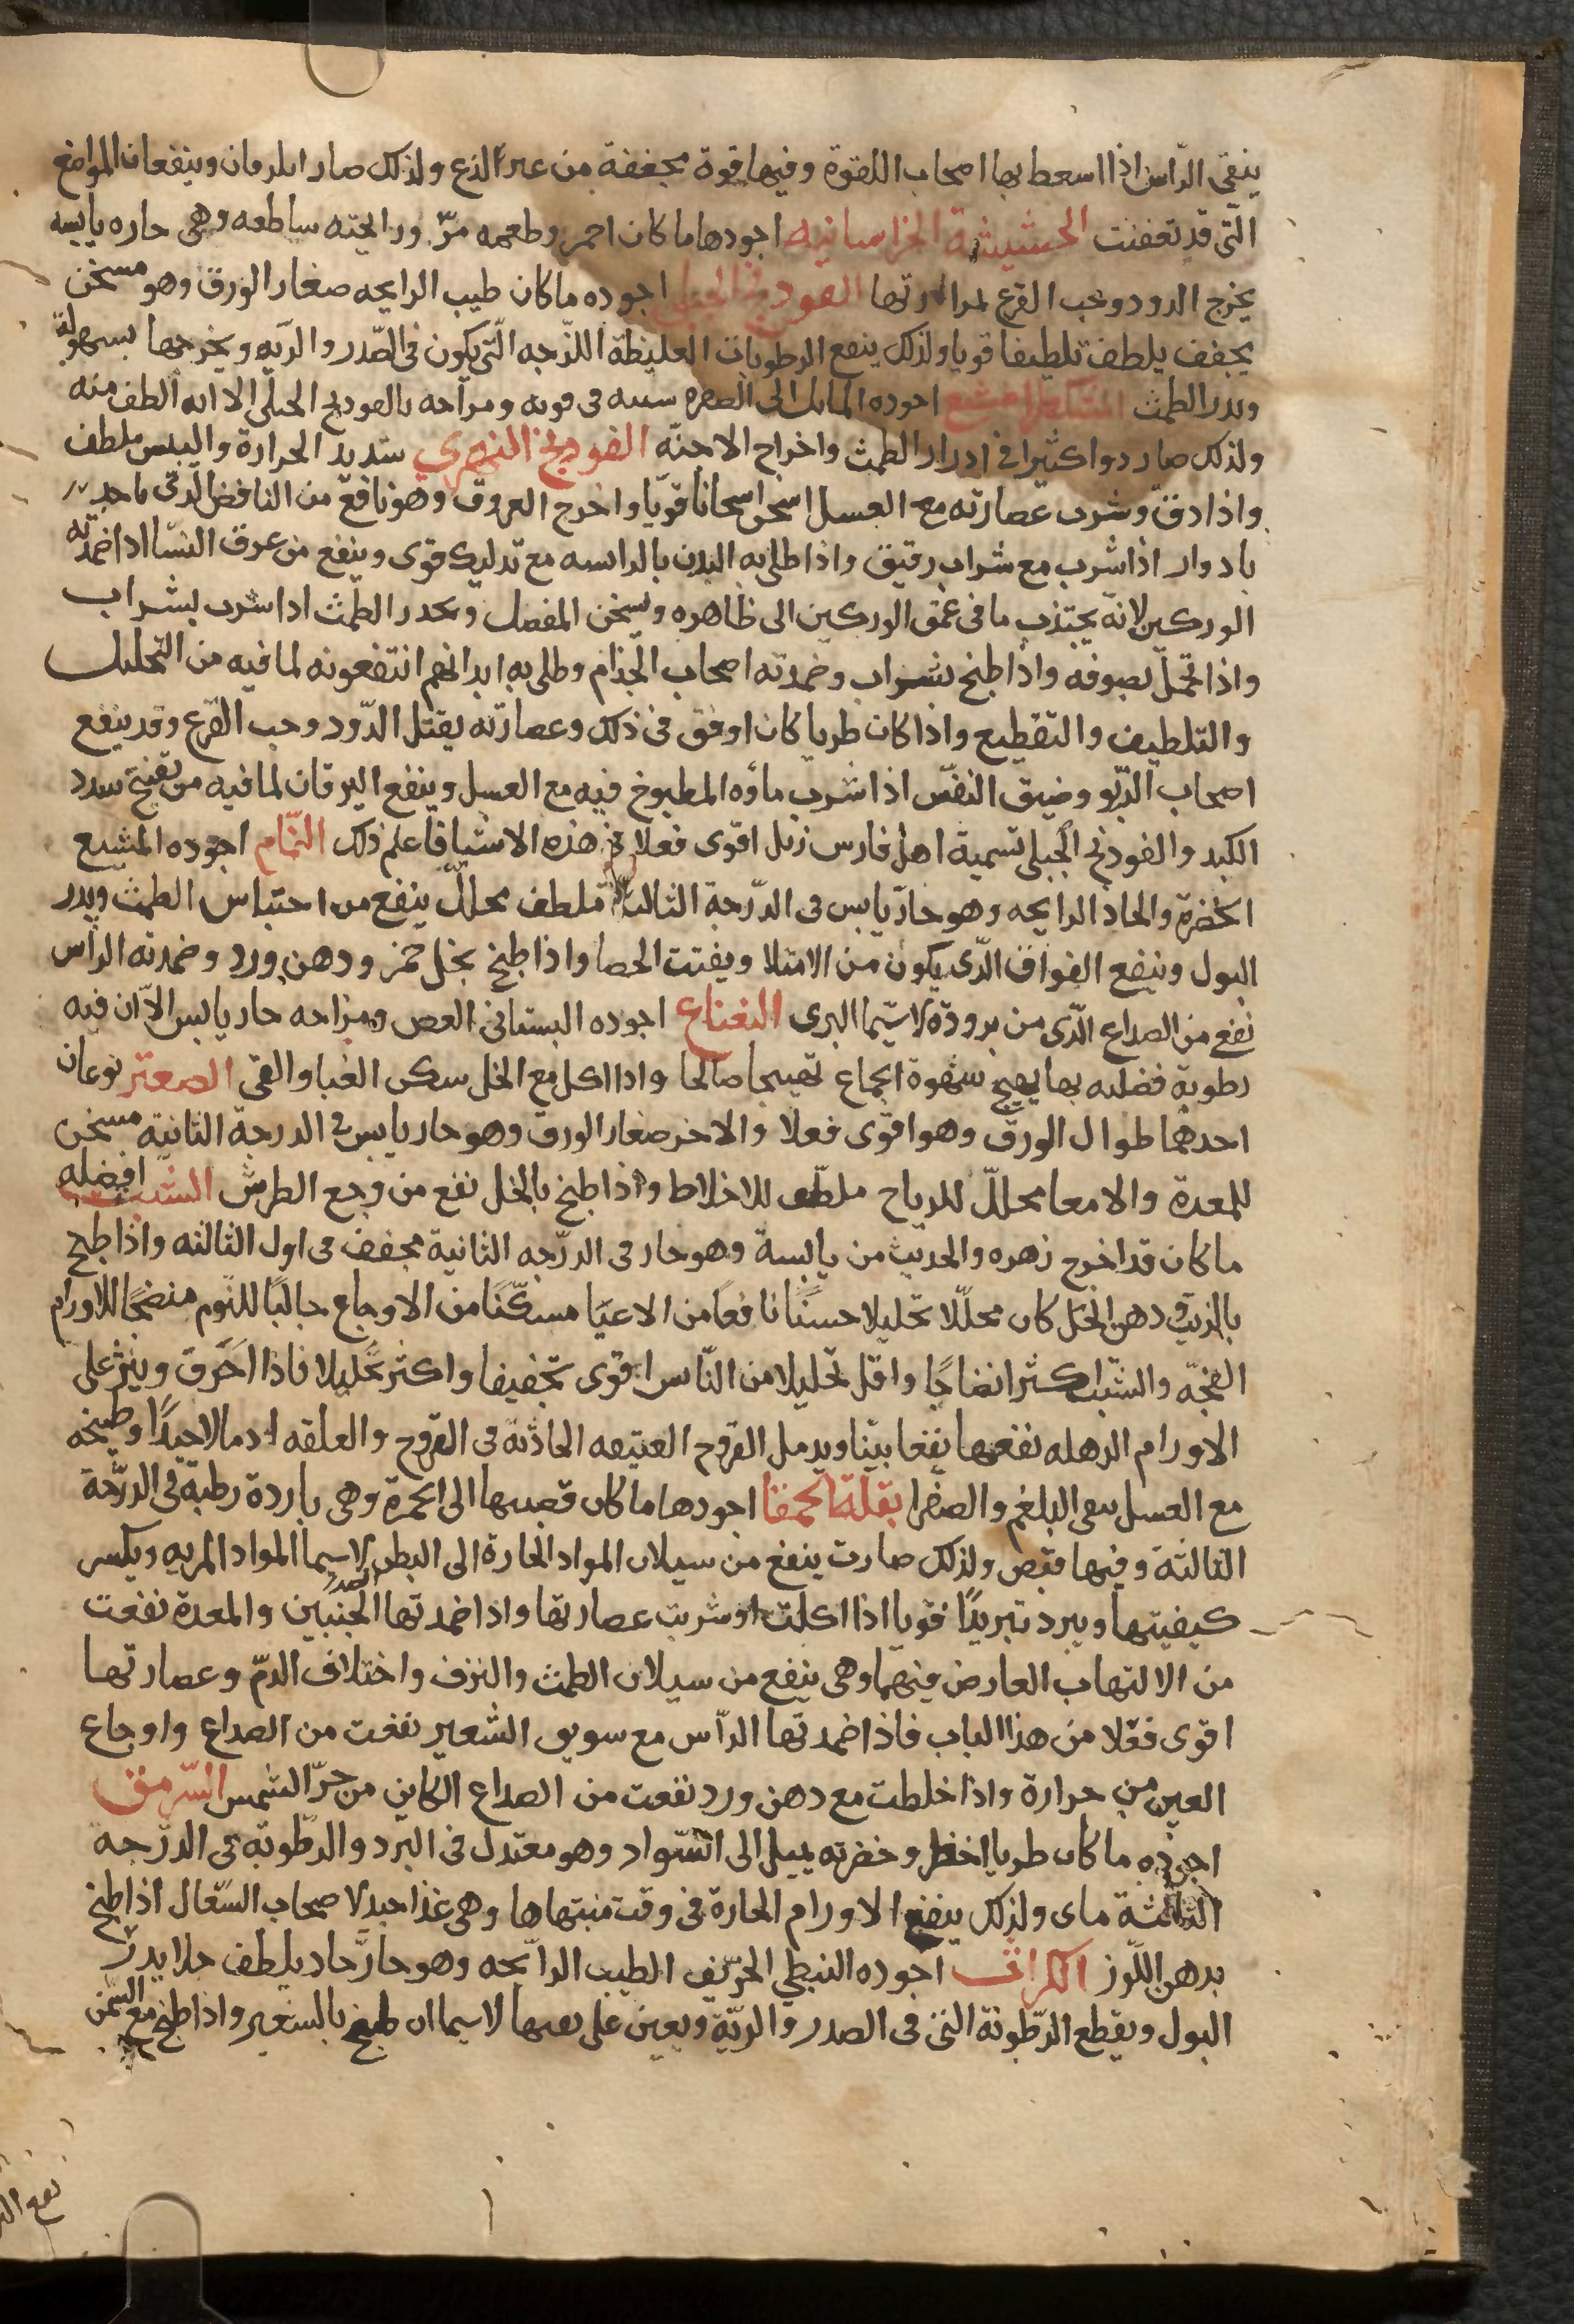 ينقى الرّاس اذا اسعط بها اصحاب اللقوة وفيها قوة مجففة من غير الذع ولذلك صار وينفعان المواضع
الّتى قد تعفنت الحشيشة الخراسانيه اجودها ما كان احمر وطعمه مرّ ورايحته ساطعه وهى حاره يابسه
يخرج الدود وحب القرع لمرارتها الفودنج الجبلى اجوده ما كان طيب الرايحه صغار الورق وهو مسخن
يجفف يلطف تلطيفا قويا ولذلك ينفع الرطوبات الغليظة اللزجه الّتى يكون فى الصّدر والريه ويخرجها بسهولة
ويدر الطمث المشكطرامشيع اجوده المايل الى الصفره فى قوته ومزاجه بالفودنج الجبلى الا انه الطف منه
ولذلك صار دوا كثيرا فى ادرار الطمث واخراج الاجنّه الفودنج النهري شديد الحرارة واليبس ملطف
واذا دقّ وشرب عصارته مع العسل اسخن اسخانا قويّا واخرج العروق وهو نافع من النافض الذى ياخذ
بادوار اذا شرب مع شراب رقيق واذا طلى به البدن مع تدليك قوى وينفع من عرق النسّا اذا ضمد به
الوركين لانه يجتذب ما فى عمق الوركين الى ظاهره ويسخن المفصل ويحدر الطمث اذا شرب بشراب
واذا تحمّل بصوفه واذا طبخ بشراب وضمد به اصحاب الجذام وطلى به ابدانهم انتفعو به لما فيه من التحليل
والتلطيف والتقطيع واذا كان طريا كان اوفق فى ذلك وعصارته يقتل الدّود وحب القرع وقد ينفع
اصحاب الرّبو وضيق النفس اذا شرب ماؤه المطبوخ فيه مع العسل وينفع اليرقان لما فيه من تفتيح سدد
الكبد والفودنج الجبلى تسمية اهل فارس زنل اقوى فعلا فى هذه الاشيا فاعلم ذلك النمّام اجوده المشبع
الخضرة والحاد الرايحه وهو حارّ يابس فى الدّرجة الثالثة ملطف محللّ ينفع من احتباس الطمث ويدر
البول وينفع الفواق الذّى يكون من الامتلا ويفتت الحصا واذا طبخ بخل خمر ودهن ورد وضمد به الرأس
نفع من الصداع الذّى من برودة لاسّيما البرى النعناع اجوده البستانى الغض ومزاجه حار يابس الاّ ان فيه
رطوبة فضليه بها يهيج شهوة الجماع تهييجا صالحا واذا اكل مع الخل سكن الغثيا والقى الصعتر نوعان
احدهما طوال الورق وهو اقوى فعلا والاخر صغار الورق وهو حار يابس فى الدرجة الثانية مسخن
للمعدة والامعا محللّ للرياح ملطف للاخلاط واذا طبخ بالخل نفع من وجع الطرش الشبث افضله
ما كان قد اخرج زهره والحديث من يابسة وهو حار فى الدرّجه الثانية مجفف فى اول الثالثه واذا طبخ
بالزيت ودهن الخل كان محللّا تحليلا حسنًا نافعًا من الاعيا مسكّنًا من الاوجاع جالبًا للنوم منضجًا للاورام
الفجّه والشبث اكثر انضاجًا واقل تحليلا من النّاس اقوى تجفيفا واكثر تحليلا فاذا احرق وينثر على
الاورام الرهله نفعها نفعا بيّنا ويدمل القروح العتيقه الحادثة فى القروح والعلقه ادمالا جيدًا وطبيخه
مع العسل ينقى البلغم والصفرا بقلة الحمقا اجودها ما كان قضيبها الى الحمرة وهى باردة رطبة فى الدرّجة
الثالثة وفيها قبض ولذلك صارت ينفع من سيلان المواد الحارة الى البطن لاسيما المواد المريه ويكسر
كيفيتها ويبرد تبريدًا قويا اذا اكلت او شربت عصارتها واذا ضمد تها الجنبين والمعدة نفعت
من الالتهاب العارض فيهما وهى ينفع من سيلان الطمث والنزف واختلاف الدمّ وعصارتها
اقوى فعلا من هذا الباب فاذا ضمد تها الرأس مع سويق الشعير نفعت من الصداع واوجاع
العين من حرارة واذا خلطت مع دهن ورد نفعت من الصداع الكاين من حرّ الشمس السّرمق
اجوده ما كان طريا اخضر وخضرته يميل الى السّواد وهو معتدل فى البرد والرّطوبة فى الدرّجه
الثالثة ماى ولذلك ينفع الاورام الحارة فى وقت منتهاها وهى غذا جيد لاصحاب السّعال اذا طبخ
بدهن اللّوز الكراث اجوده النبطي الحرّيف الطيب الرآيحه وهو حارّ حاد يلطف جلا يدرّ
البول ويقطع الرّطوبة التى فى الصدر والريّة ويعين على نفثها لاسيما ان طبخ بالشعير واذا طبخ مع السّمن